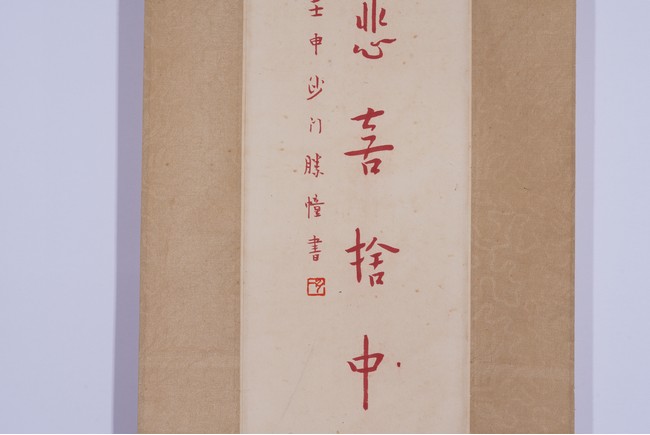 悲喜捨中
壬申沙门勝幢書